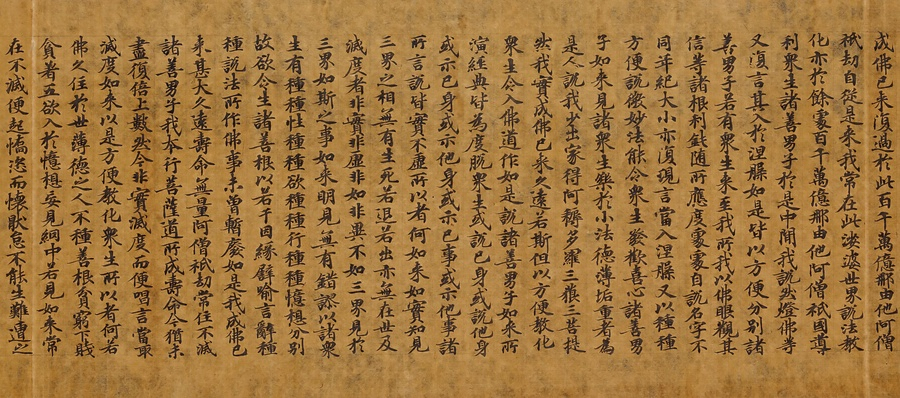 成佛已來復過於此百千萬億那由他阿僧
祇劫自從是來我常在此娑婆世界說法教
化亦於餘處百千萬億那由他阿僧祇國導
利衆生諸善男子於是中間我說然燈佛等
又復言其入於涅槃如是皆以方便分別諸
善男子若有衆生來至我所我以佛眼觀其
信等諸根利鈍隨所應度處處自說名字不
同年紀大小亦復現言當入涅槃又以種種
方便說微妙法能令衆生發歡喜心諸善男
子如來見諸衆生樂於小法德薄垢重者為
是人說我少出家得阿耨多羅三藐三菩提
然我實成佛已來久遠若斯但以方便教化
衆生令入佛道作如是說諸善男子如來所
演經典皆為度脫衆生或說己身或說他身
或示己身或示他身或示己事或示他事諸
所言說皆實不虛所以者何如來如實知見
三界之相無有生死若退若出亦無在世及
滅度者非實非虛非如非異不如三界見於
三界如斯之事如來明見無有錯謬以諸衆
生有種種性種種欲種種行種種憶想分別
故欲令生諸善根以若干因緣譬喻言辭種
種說法所作佛事未曾暫廢如是我成佛已
來甚大久遠壽命無量阿僧祇劫常住不滅
諸善男子我本行菩薩道所成壽命今猶未
盡復倍上數然今非實滅度而便唱言當取
滅度如來以是方便教化衆生所以者何若
佛久住於世薄德之人不種善根貧窮下賤
貪著五欲入於憶想妄見網中若見如來常
在不滅便起憍恣而懷厭怠不能生難遭之